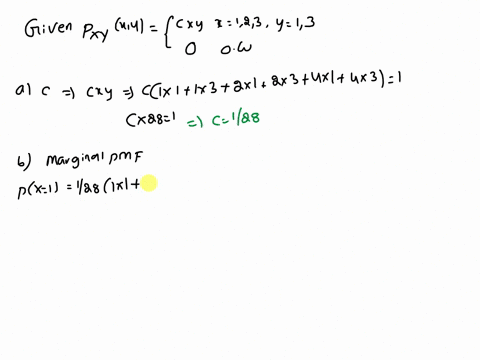 Given P_XY (x,y) = { Cxy x=1,2,3, y=1,3
0 o.w
a) c ⇒ cxy ⇒ c(1x1 + 1x3 + 2x1 + 2x3 + 4x1 + 4x3) = 1
Cx28=1 ⇒ C=1/28
b) Marginal pmf
p(x=1) = 1/28 (1x1 +